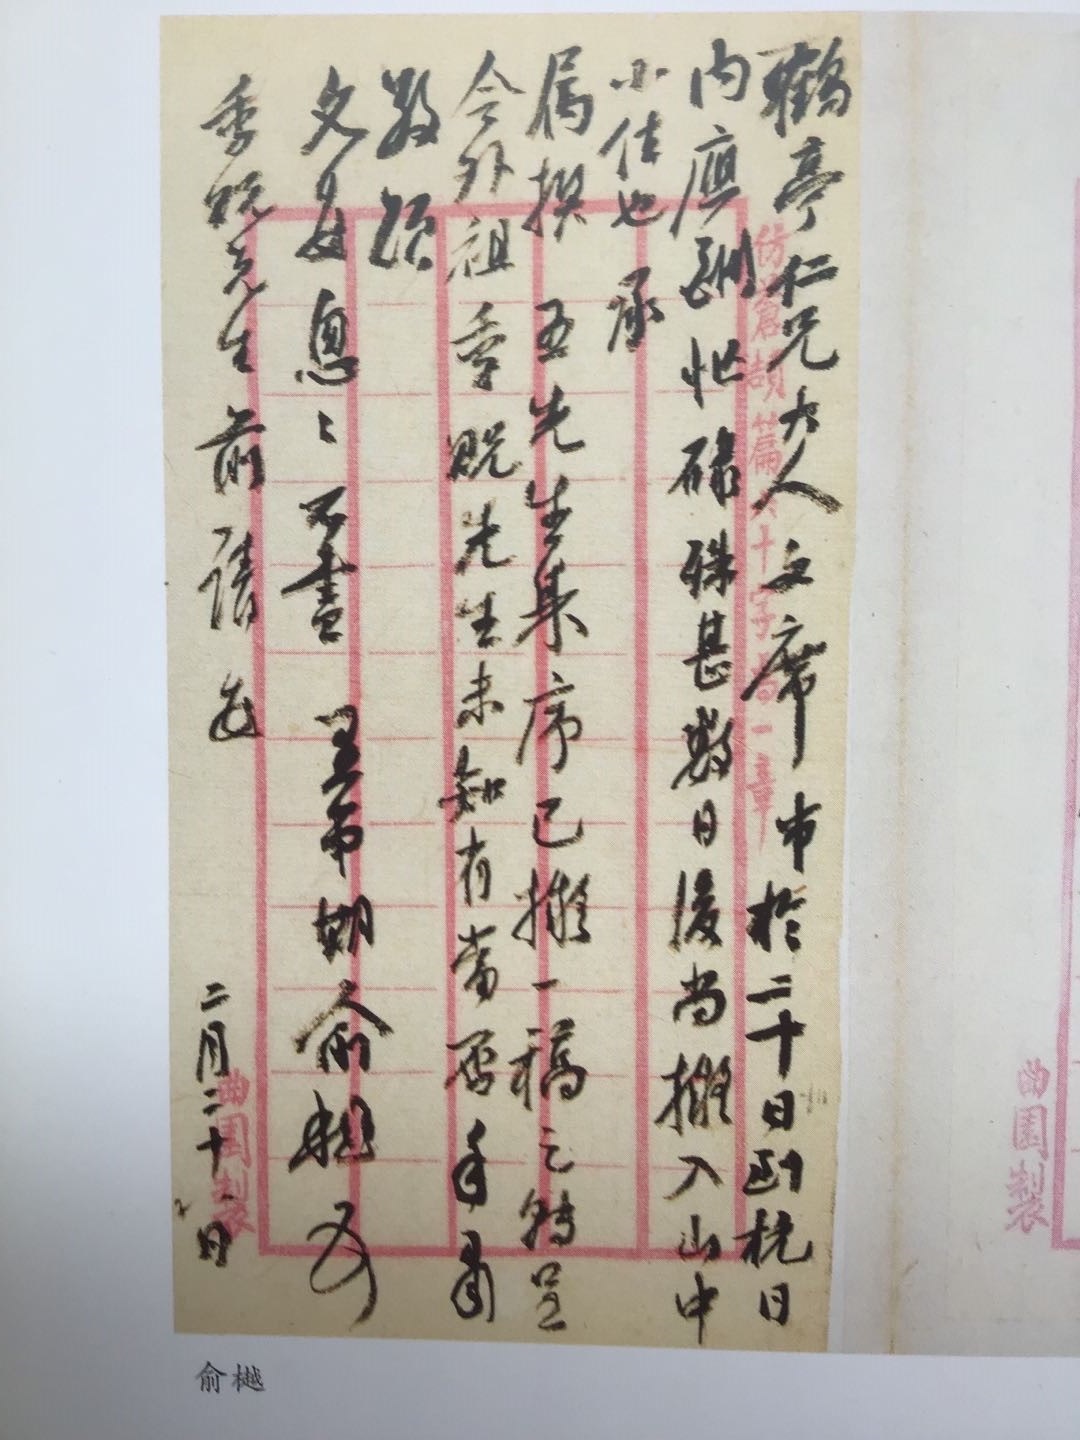 鶴亭仁兄大人文席弟於二十日到杭日
内應酬忙碌殊甚數日後尚擬入山中
小住也承
属撰五先生集序已擬一稿乞轉呈
令外祖季貺先生未知有當否手肅
敬頌
文安匆匆不盡愚弟期俞樾頓首
季貺先生前請安
二月二十八日
仿蒼頡篇六十字為一章
曲園製
曲園製
俞樾